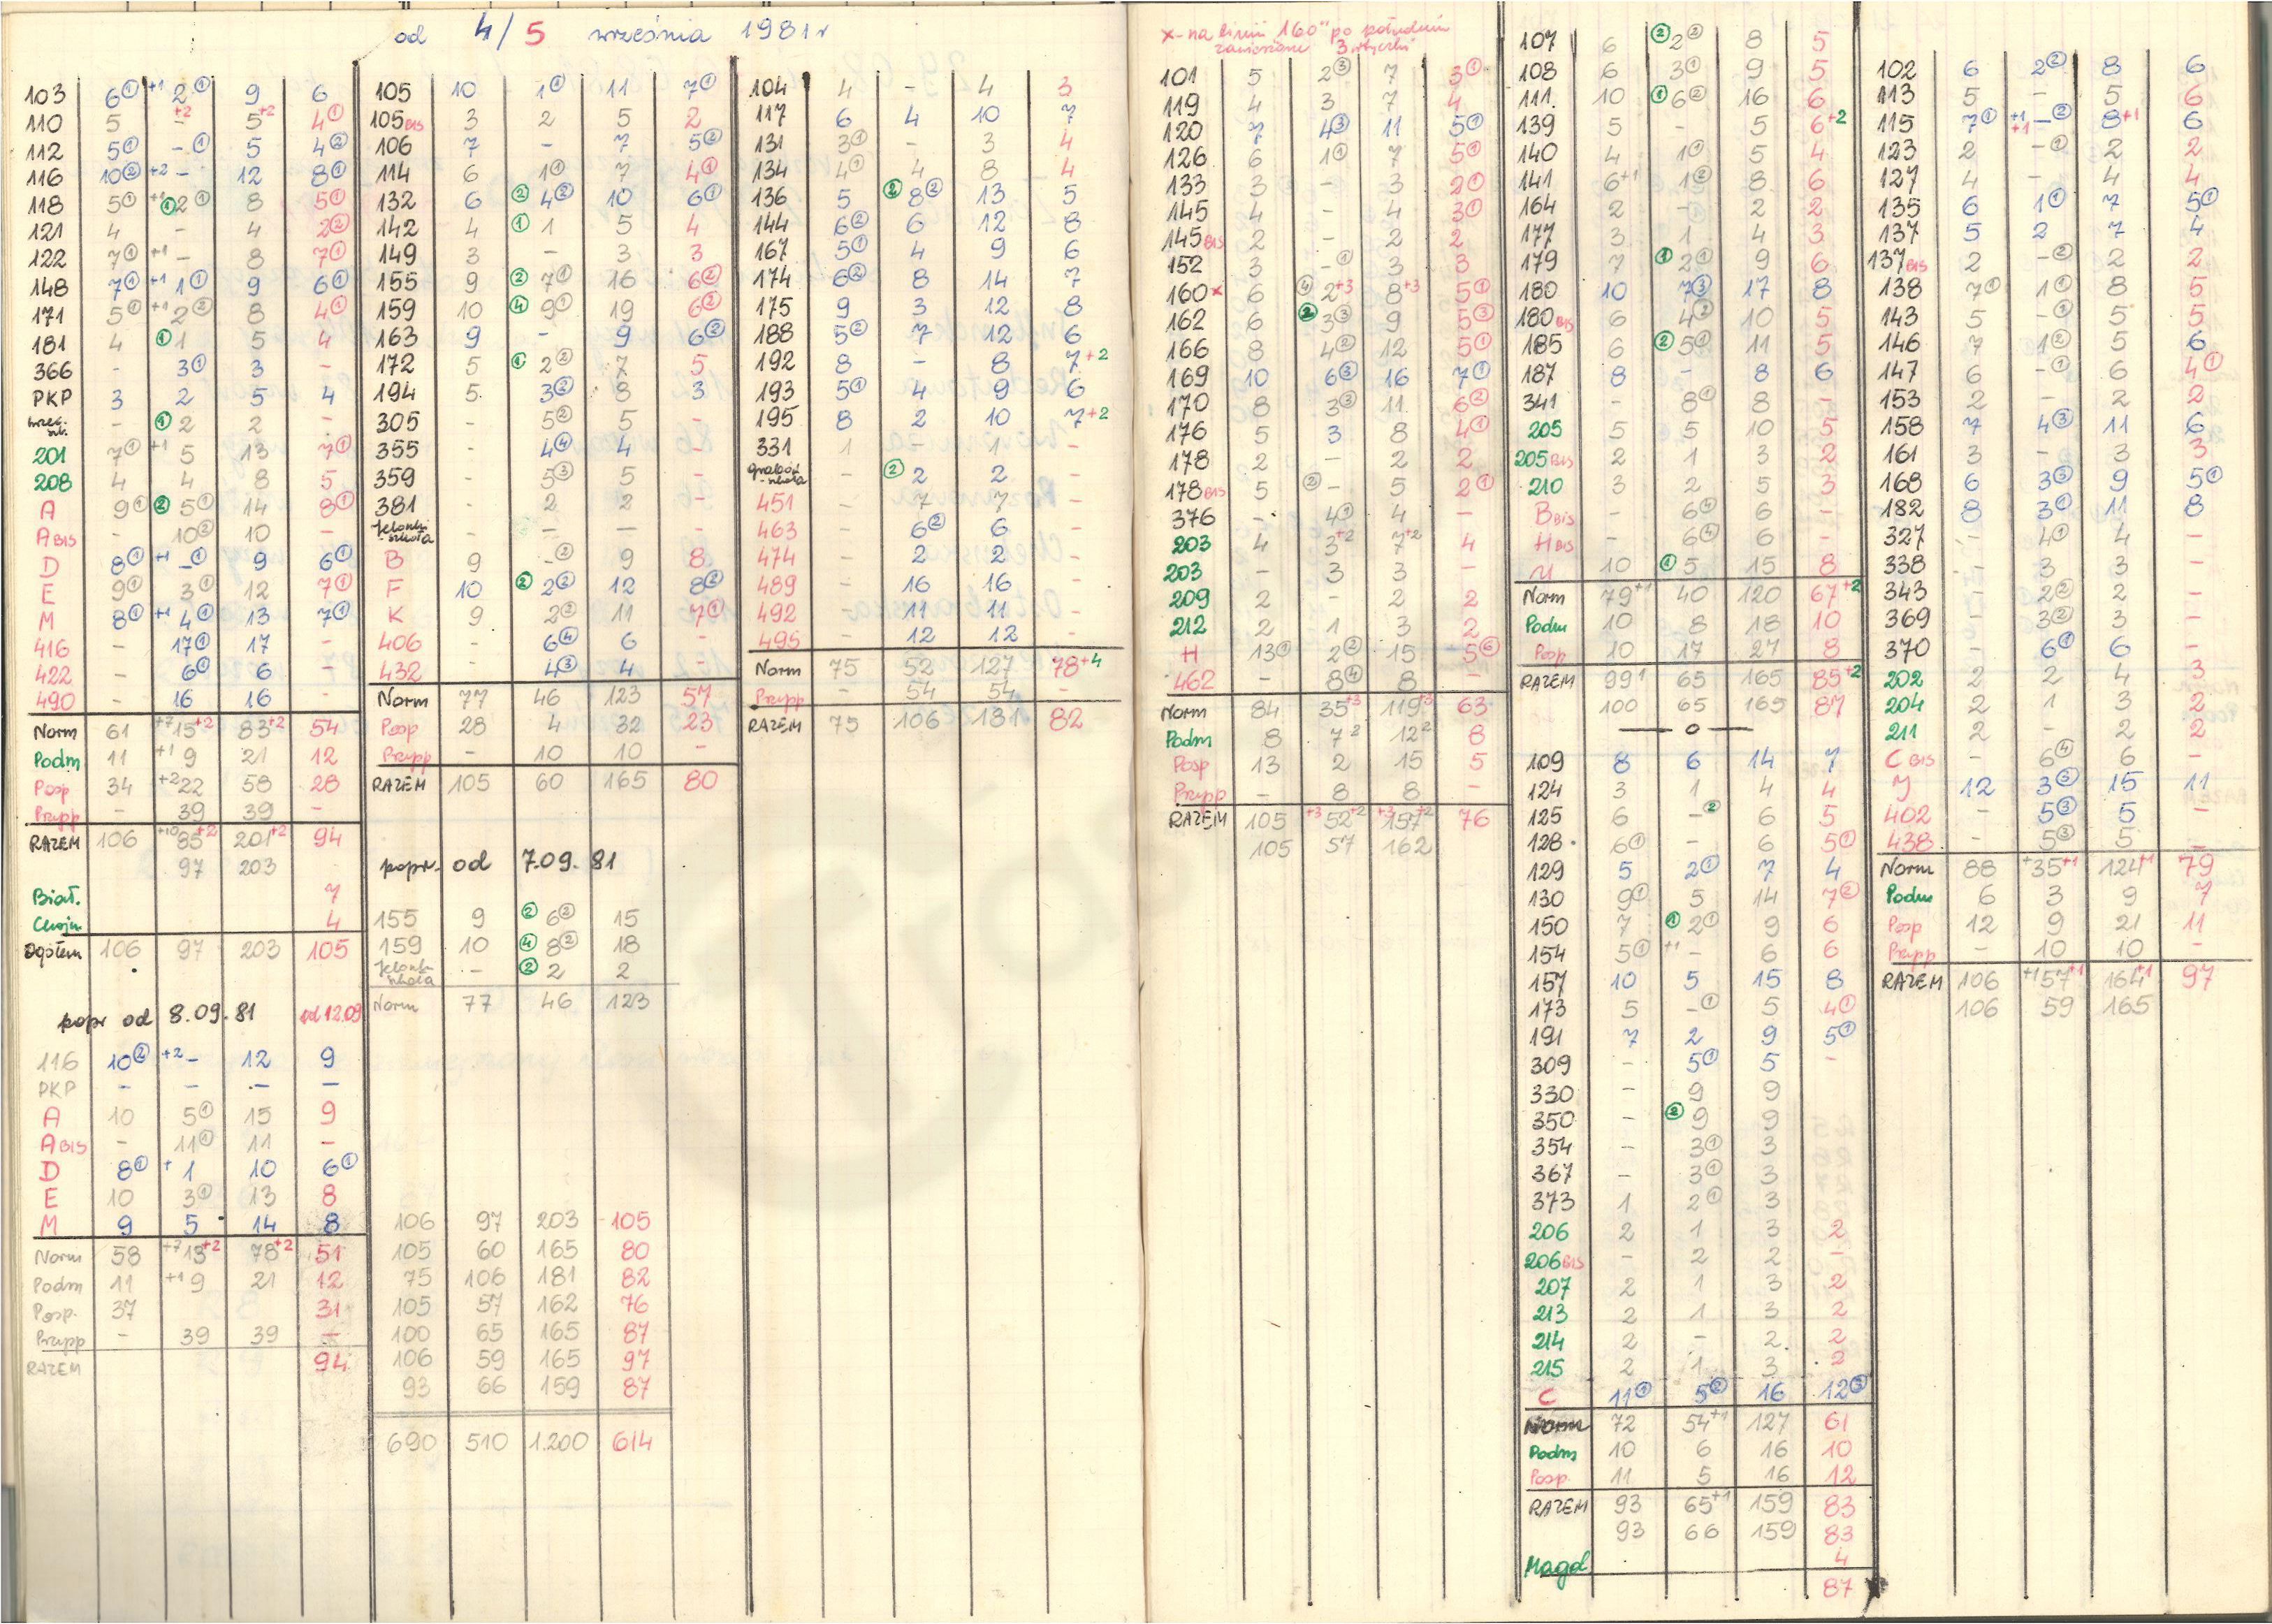 od 4/5 września 1981 r
103 6① +1 2① 9 6
110 5 - +2 5+2 4①
112 5① -① 5 4②
116 10② +2 - 12 8①
118 5① +1 ①2① 8 5①
121 4 - 4 2②
122 7① +1 - 8 7①
148 7① +1 1① 9 6①
171 5① +1 2② 8 4①
181 4 ①1 5 4
366 - 3① 3 -
PKP 3 2 5 4
- ①2 2 -
201 7① +1 5 13 7①
208 4 4 8 5
A 9① ②5① 14 8①
A BIS - 10② 10 -
D 8① +1 -① 9 6①
E 9① 3① 12 7①
M 8① +1 4① 13 7①
416 - 17① 17 -
422 - 6① 6 -
490 - 16 16 -
Norm 61 +7 15+2 83+2 54
Podm 11 +1 9 21 12
Posp 34 +2 22 58 28
Przysp - 39 39 -
RAZEM 106 +10 85+2 201+2 94
97 203
Biał. 7
Chojn 4
Ogółem 106 97 203 105
popr od 8.09.81 od 12.09
116 10② +2 - 12 9
PKP - - - -
A 10 5① 15 9
A BIS - 11① 11 -
D 8① + 1 10 6①
E 10 3① 13 8
M 9 5 14 8
Norm 58 +7 13+2 78+2 51
Podm 11 +1 9 21 12
Posp. 37 31
Przysp - 39 39 -
RAZEM 94
105 10 1① 11 7①
105 BIS 3 2 5 2
106 7 - 7 5②
114 6 1① 7 4①
132 6 ②4② 10 6①
142 4 ①1 5 4
149 3 - 3 3
155 9 ②7① 16 6②
159 10 ④9① 19 6②
163 9 - 9 6②
172 5 ①2② 7 5
194 5 3② 8 3
305 - 5② 5 -
355 - 4④ 4 -
359 - 5③ 5 -
381 - 2 2 -
Jelonki szkoła - - - -
B 9 -② 9 8
F 10 ②2② 12 8②
K 9 2② 11 7①
406 - 6④ 6 -
432 - 4③ 4 -
Norm 77 46 123 57
Posp 28 4 32 23
Przysp - 10 10 -
RAZEM 105 60 165 80
popr. od 7.09.81
155 9 ②6② 15
159 10 ④8② 18
Jelonk szkoła - ②2 2
Norm 77 46 123
106 97 203 105
105 60 165 80
75 106 181 82
105 57 162 76
100 65 165 87
106 59 165 97
93 66 159 87
690 510 1.200 614
104 4 - 4 3
117 6 4 10 7
131 3① - 3 4
134 4① 4 8 4
136 5 ②8② 13 5
144 6② 6 12 8
167 5① 4 9 6
174 6② 8 14 7
175 9 3 12 8
188 5② 7 12 6
192 8 - 8 7+2
193 5① 4 9 6
195 8 2 10 7+2
331 1 - 1 -
szkoła - ②2 2 -
451 - 7 7 -
463 - 6② 6 -
474 - 2 2 -
489 - 16 16 -
492 - 11 11 -
495 - 12 12 -
Norm 75 52 127 78+4
Przysp - 54 54 -
RAZEM 75 106 181 82
x - na linii "160" po południu
zawieszone 3 wtyczki
101 5 2③ 7 3①
119 4 3 7 4
120 7 4③ 11 5①
126 6 1① 7 5①
133 3 - 3 2①
145 4 - 4 3①
145 BIS 2 - 2 2
152 3 -① 3 3
160x 6 ④2+3 8+3 5①
162 6 ②3③ 9 5③
166 8 4② 12 5①
169 10 6③ 16 7①
170 8 3③ 11 6②
176 5 3 8 4①
178 2 - 2 2
178 BIS 5 ②- 5 2①
376 - 4① 4 -
203 4 3+2 7+2 4
203 - 3 3 -
209 2 - 2 2
212 2 1 3 2
H 13① 2② 15 5⑥
462 - 8④ 8 -
Norm 84 35+3 119+3 63
Podm 8 7 2 12 2 8
Posp 13 2 15 5
Przysp - 8 8 -
RAZEM 105 +3 52+2 +3 157+2 76
105 57 162
107 6 ②2② 8 5
108 6 3① 9 5
111. 10 ①6② 16 6
139 5 - 5 6+2
140 4 1① 5 4
141 6+1 1② 8 6
164 2 - 2 2
177 3 1 4 3
179 7 ①2① 9 6
180 10 7③ 17 8
180 BIS 6 4② 10 5
185 6 ②5① 11 5
187 8 - 8 6
341 - 8① 8 -
205 5 5 10 5
205 BIS 2 1 3 2
210 3 2 5 3
B BIS - 6④ 6 -
H BIS - 6④ 6 -
U 10 ①5 15 8
Norm 79+1 40 120 67+2
Podm 10 8 18 10
Posp 10 17 27 8
RAZEM 99 1 65 165 85+2
100 65 165 87
— o —
109 8 6 14 7
124 3 1 4 4
125 6 -② 6 5
128. 6① - 6 5①
129 5 2① 7 4
130 9① 5 14 7②
150 7 ①2① 9 6
154 5① +1 - 6 6
157 10 5 15 8
173 5 -① 5 4①
191 7 2 9 5①
309 - 5① 5 -
330 - 9 9
350 - ②9 9
354 - 3① 3
367 - 3① 3
373 1 2① 3
206 2 1 3 2
206 BIS - 2 2 -
207 2 1 3 2
213 2 1 3 2
214 2 - 2 2
215 2 1 3 2
C 11① 5② 16 12③
Norm 72 54+1 127 61
Podm 10 6 16 10
Posp. 11 5 16 12
RAZEM 93 65+1 159 83
93 66 159 83
Magd 4
87
102 6 2② 8 6
113 5 - 5 6
115 7① +1 +1 -② 8+1 6
123 2 -① 2 2
127 4 - 4 4
135 6 1① 7 5①
137 5 2 7 4
137 BIS 2 -② 2 2
138 7① 1① 8 5
143 5 -① 5 5
146 7 1② 5 6
147 6 -① 6 4①
153 2 - 2 2
158 7 4③ 11 6
161 3 - 3 3
168 6 3③ 9 5①
182 8 3① 11 8
327 - 4① 4 -
338 - 3 3 -
343 - 2② 2 -
369 - 3② 3 -
370 - 6① 6 -
202 2 2 4 3
204 2 1 3 2
211 2 - 2 2
C BIS - 6④ 6 -
J 12 3③ 15 11
402 - 5③ 5 -
438 - 5③ 5 -
Norm 88 +35+1 124+1 79
Podm 6 3 9 7
Posp 12 9 21 11
Przysp - 10 10 -
RAZEM 106 +1 57+1 164+1 97
106 59 165